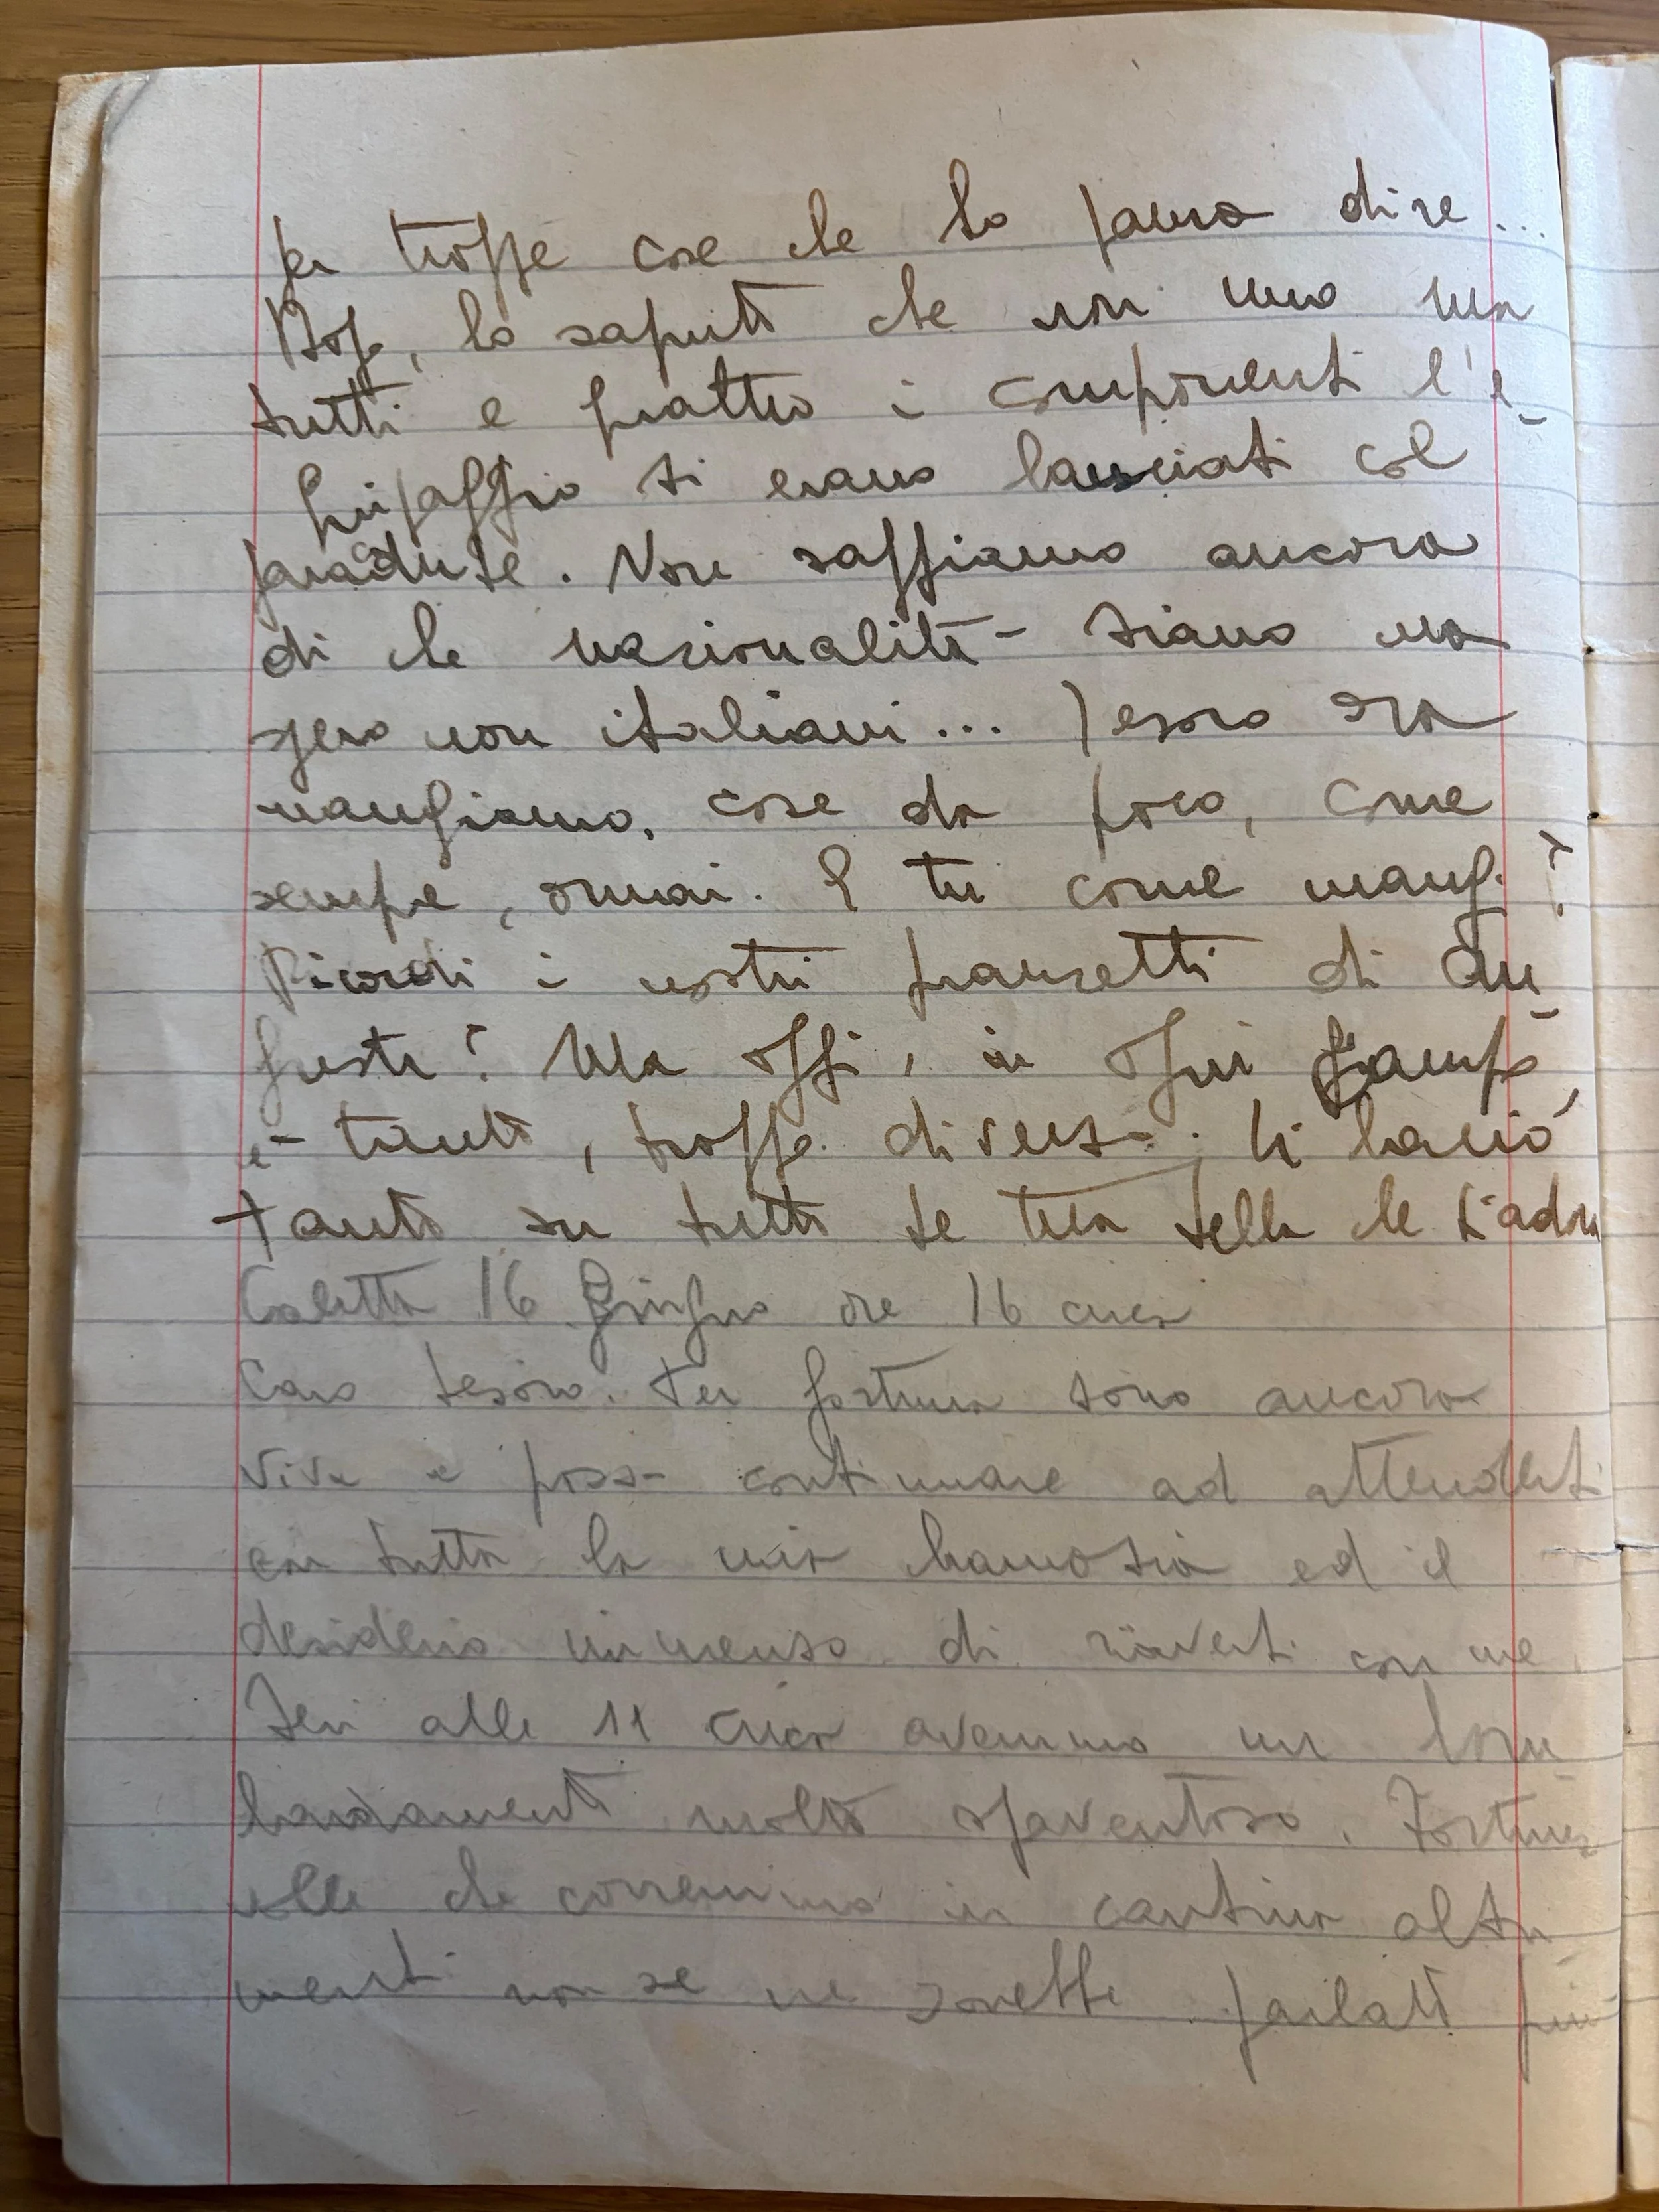 per troppe cose che ho paura dire...
Dopo, ho saputo che non uno ma
tutti e quattro i componenti l'e-
quipaggio si erano lanciati col
paracadute. Non sappiamo ancora
di che nazionalità siano ma
spero non italiani... Tesoro ora
mangiamo, cose da poco, come
sempre, ormai. E tu come mangi?
Ricordi i nostri pranzetti di Au-
gusta? Ma oggi, in ogni campo,
è tanto, troppo diverso. Ti bacio
tanto su tutto te tua Lella che t'adora
Caletta 16 Giugno ore 16 circa
Caro tesoro. Per fortuna sono ancora
viva e posso continuare ad attenderti
con tutta la mia bramosia ed il
desiderio immenso di riaverti con me.
Ieri alle 11 circa avemmo un bom-
bardamento molto spaventoso. Fortuna
volle che corremmo in cantina altri-
menti non se ne sarebbe parlato più